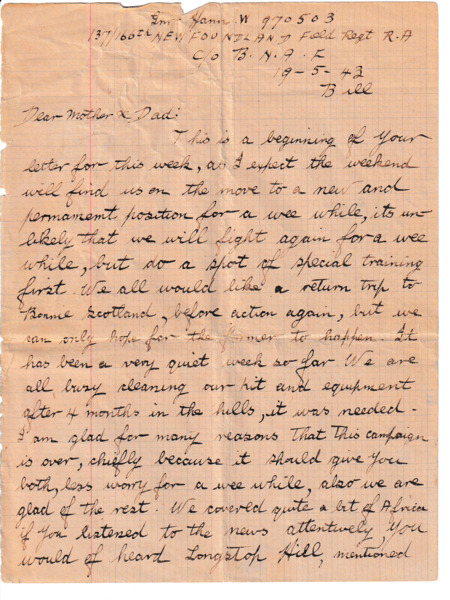 Gnr Hann. W 970503
137/166th NEWFOUNDLAND Field Regt R.A
C/o B.N.A.F
19-5-43
Bill
Dear Mother & Dad:
This is a beginning of your
letter for this week, as I expect the weekend
will find us on the move to a new and
permament position for a wee while, its un-
likely that we will fight again for a wee
while, but do a spot of special training
first. We all would like a return trip to
Bonnie Scotland, before action again, but we
can only hope for the former to happen. It
has been a very quiet week so far We are
all busy cleaning our kit and equipment
after 4 months in the hills, it was needed -
I am glad for many reasons that this campaign
is over, chiefly because it should give you
both, less worry for a wee while, also we are
glad of the rest. We covered quite a bit of Africa
if you listened to the news attentively, you
would of heard Longstop Hill, mentioned